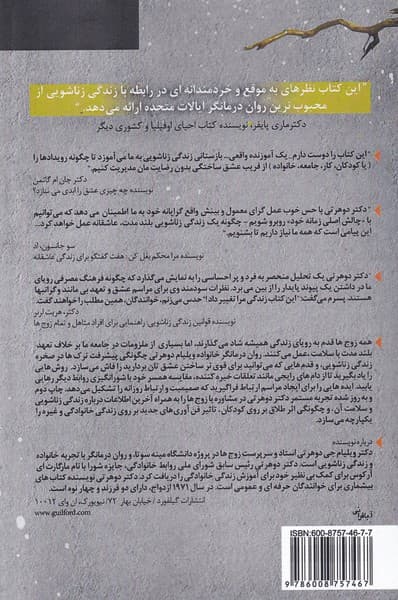 " این کتاب نظرهای به موقع و خردمندانه ای در رابطه با زندگی زناشویی از
محبوب ترین روان درمانگر ایالات متحده ارائه می‌دهد. "
دکتر ماری پایفر، نویسنده کتاب احیای اوفیلیا و کشوری دیگر
"این کتاب را دوست دارم... یک آموزنده واقعی... بازستانی زندگی زناشویی به ما می‌آموزد تا چگونه رویدادها را
( با کودکان، کار، جامعه، خانواده ) از فریب عشق ساختگی بدون رضایت مان مدیریت کنیم."
دکتر جان ام گاتمن
نویسنده چه چیزی عشق را ابدی می سازد؟
"دکتر دوهرتی با حس خوب عمل گرای معمول و بینش واقع گرایانه خود به ما اطمینان می‌دهد که می‌توانیم
با «چالش اصلی زمانه خود» روبرو شویم - چگونه یک زندگی زناشویی بلند مدت، عاشقانه عمل خواهد کرد.
این پیامی است که همه ما نیاز داریم تا بشنویم."
سو جانسون، اد
نویسنده مرا محکم بغل کن: هفت گفتگو برای زندگی عاشقانه
"دکتر دوهرتی یک تحلیل منحصر به فرد و پر احساسی را به نمایش می‌گذارد که چگونه فرهنگ مصرفی رویای
ما در داشتن یک پیوند پایدار را از بین می‌برد. نظرات سودمند وی برای مراسم عشق و تعهد بی مانند و گرانبها
هستند. پسرم می‌گفت: "این کتاب زندگی مرا تغییر داد!" حدس می‌زنم، خوانندگان، همین مطلب را خواهند گفت.
دکتر، هریت لرنر
نویسنده قوانین زندگی زناشویی: راهنمایی برای افراد متاهل و تمام زوج ها
همه زوج ها قدم به رویای زندگی همیشه شاد می گذارند. اما بسیاری از ملزومات در جامعه ما بر خلاف تعهد
بلند مدت با سلامت، عمل می‌کنند. روان درمانگر خانواده ویلیام دوهرتی چگونگی پیشرفت ترک ها در صخره
زندگی زناشویی، و قدم هایی که می توانید برای قوی تر ساختن عشق تان بردارید را فاش می‌سازد. روش هایی
را یاد بگیرید تا از دام های رایجی مانند تعلقات خیره کننده، مقایسه همسر خود با شورانگیزی روابط دیگر رهایی
یابید. ایده هایی را برای ایجاد مراسم ارتباط فراگیرید که صمیمیت و ارتباط روزانه را تشکیل می‌دهد. چاپ دوم
و به روز شده تجربه مستمر دکتر دوهرتی در مشاوره با زوج ها را به همراه آخرین اطلاعات درباره زندگی زناشویی
و سلامت آن، و چگونگی اثر طلاق بر روی کودکان، تاثیر فن آوری های جدید بر روی زندگی خانوادگی و غیره را
یکپارچه می‌سازد.
درباره نویسنده
دکتر ویلیام جی دوهرتی استاد و سرپرست زوج ها در پروژه دانشگاه مینه سوتا، و روان درمانگر با تجربه خانواده
و زندگی زناشویی است. دکتر دوهرتی رئیس سابق شورای ملی روابط خانوادگی، جایزه شورا با نام مارگارت ای
آرکوس برای کمک بی نظیر خود برای آموزش زندگی خانوادگی را دریافت کرد. دکتر دوهرتی نویسنده کتاب های
بیشماری برای خوانندگان حرفه ای و عمومی است. در سال ۱۹۷۱ ازدواج، دارای دو فرزند و چهار نوه است.
انتشارات گیلفورد/ خیابان بهار ۷۲/ نیویورک، ان وای ۱۰۰۱۲
www.guilford.com
ISBN: 600-8757-46-7-7
9 786008 757467